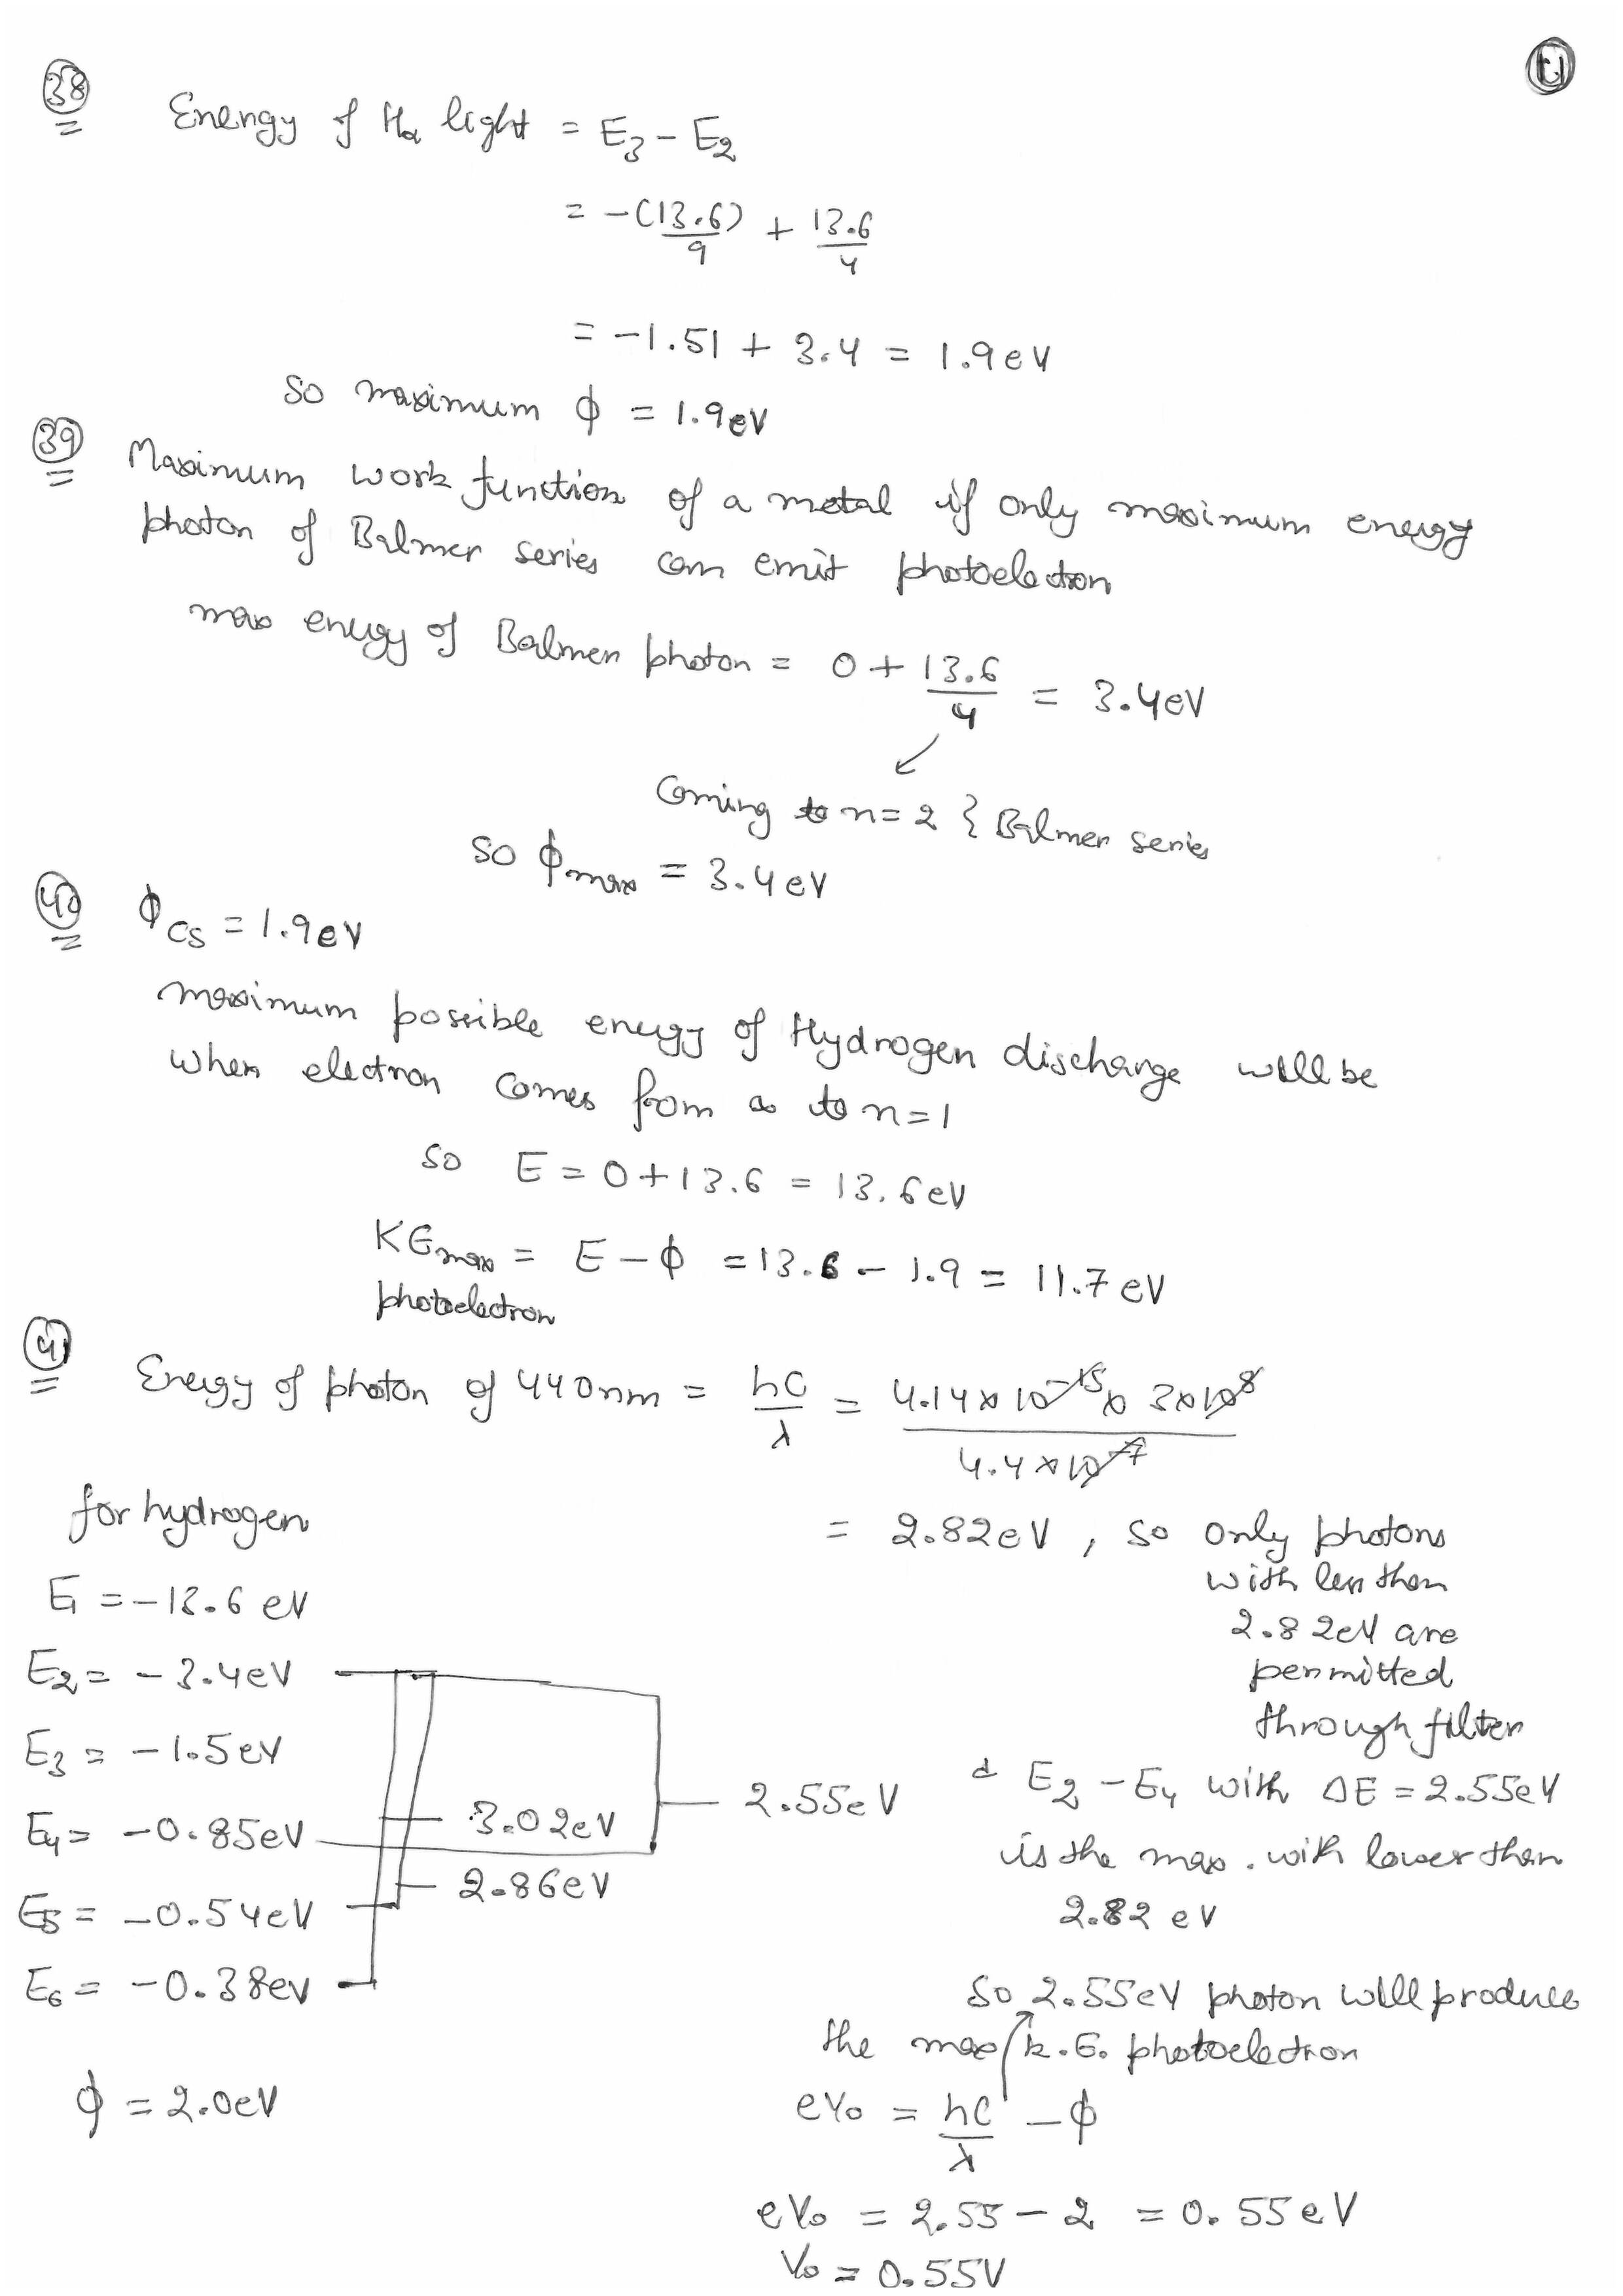 38
Energy of Hα light = E3 - E2
= -(13.6)/9 + 13.6/4
= -1.51 + 3.4 = 1.9 eV
So maximum ϕ = 1.9eV
39
Maximum work function of a metal if only maximum energy
photon of Balmer series can emit photoelectron
max energy of Balmer photon = 0 + 13.6/4 = 3.4eV
Coming to n=2 } Balmer series
So ϕmax = 3.4 eV
40
ϕCS = 1.9 eV
maximum possible energy of Hydrogen discharge will be
when electron comes from ∞ to n=1
so E = 0 + 13.6 = 13.6 eV
KEmax = E - ϕ = 13.6 - 1.9 = 11.7 eV
photoelectron
41
Energy of photon of 440nm = hC/λ = 4.14 x 10^-15 x 3x10^8 / 4.4 x 10^-7
= 2.82eV, so only photons
with less than
2.82eV are
permitted
through filter
for hydrogen
E1 = -13.6 eV
E2 = -3.4eV
E3 = -1.5eV
E4 = -0.85eV
E5 = -0.54eV
E6 = -0.38eV
3.02eV
2.86eV
2.55eV
& E2 - E4 with ΔE = 2.55eV
is the max. with lower than
2.82 eV
So 2.55eV photon will produce
the max k.E. photoelectron
ϕ = 2.0eV
eV0 = hC/λ - ϕ
eV0 = 2.55 - 2 = 0.55 eV
V0 = 0.55V